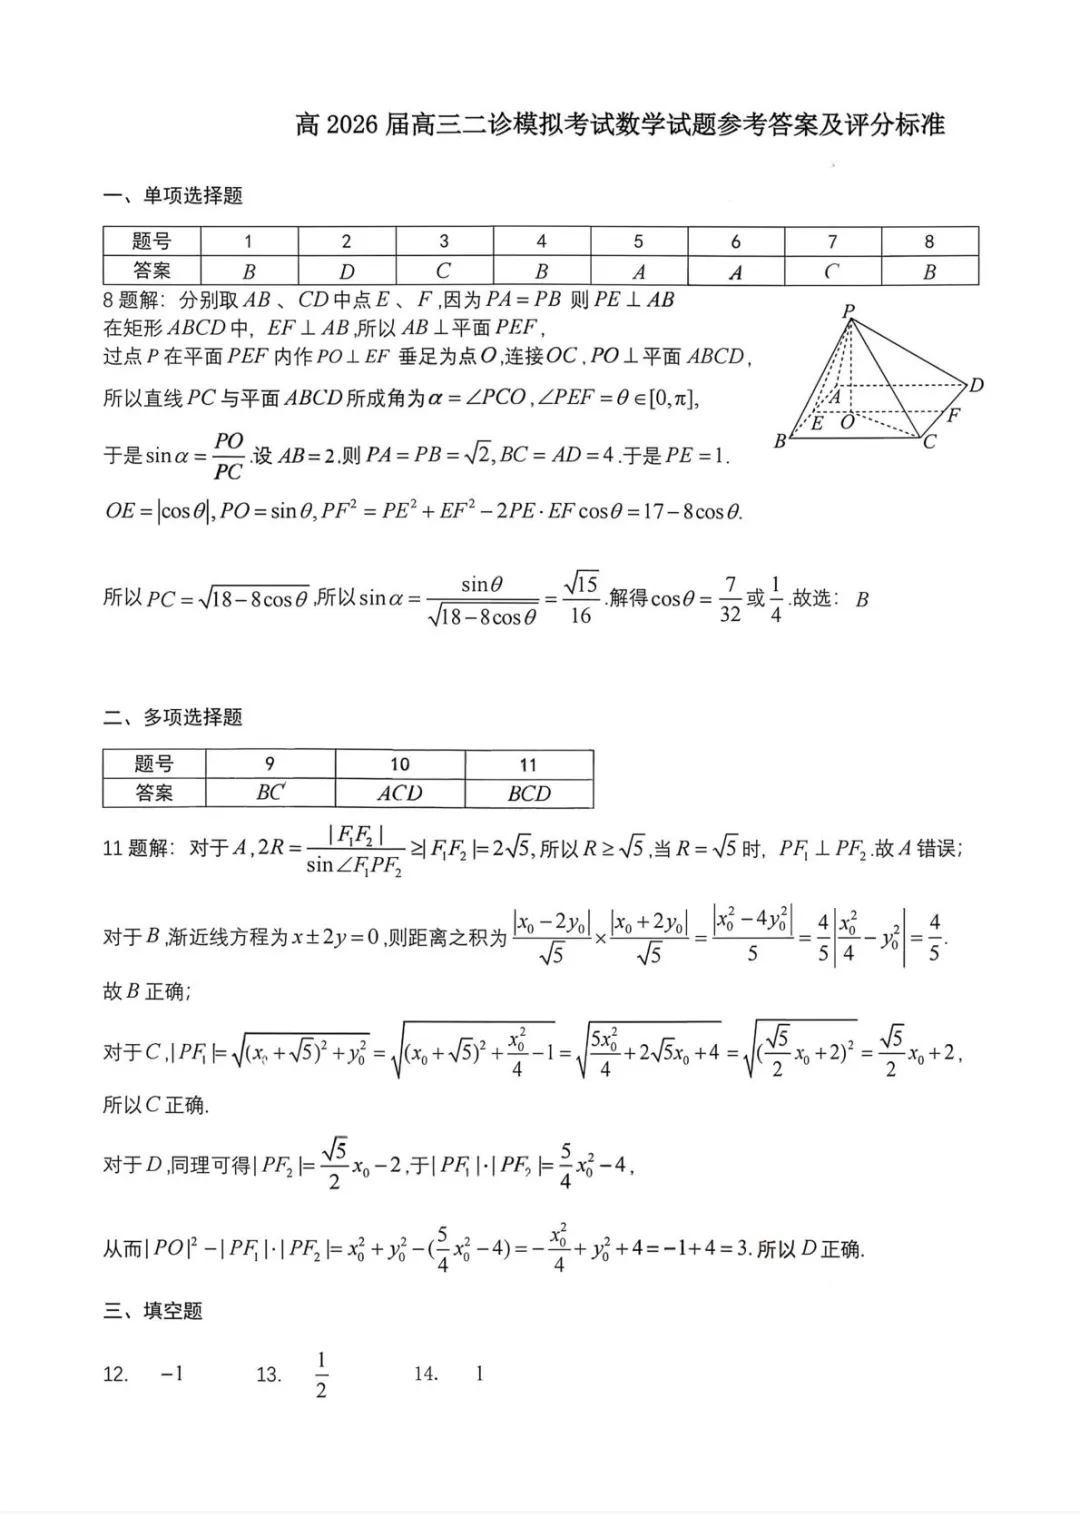 高 2026 届高三二诊模拟考试数学试题参考答案及评分标准
一、单项选择题
题号 1 2 3 4 5 6 7 8
答案 B D C B A A C B
8 题解：分别取 AB 、 CD 中点 E 、 F ,因为 PA = PB 则 PE ⊥ AB
在矩形 ABCD 中， EF ⊥ AB ,所以 AB ⊥平面 PEF ，
过点 P 在平面 PEF 内作 PO ⊥ EF 垂足为点 O ,连接 OC , PO ⊥平面 ABCD ，
所以直线 PC 与平面 ABCD 所成角为 α = ∠PCO , ∠PEF = θ ∈ [0,π],
于是 sin α = PO/PC .设 AB = 2 ,则 PA = PB = √2, BC = AD = 4 .于是 PE = 1.
OE = |cos θ|, PO = sin θ, PF² = PE² + EF² − 2PE · EF cos θ = 17 − 8cos θ.
所以 PC = √(18 − 8cos θ) ,所以 sin α = sin θ/√(18 − 8cos θ) = √15/16 .解得 cos θ = 7/32 或 1/4 .故选： B
P
A
D
E
O
F
B
C
二、多项选择题
题号 9 10 11
答案 BC ACD BCD
11 题解：对于 A , 2R = |F₁F₂|/sin∠F₁PF₂ ≥ |F₁F₂| = 2√5, 所以 R ≥ √5 ,当 R = √5 时， PF₁ ⊥ PF₂ .故 A 错误；
对于 B ,渐近线方程为 x ± 2y = 0 ,则距离之积为 |x₀ − 2y₀|/√5 × |x₀ + 2y₀|/√5 = |x₀² − 4y₀²|/5 = 4/5 |x₀²/4 − y₀²| = 4/5.
故 B 正确；
对于 C , |PF₁| = √((x₀ + √5)² + y₀²) = √((x₀ + √5)² + x₀²/4 − 1) = √(5x₀²/4 + 2√5x₀ + 4) = √((√5/2 x₀ + 2)²) = √5/2 x₀ + 2 ,
所以 C 正确.
对于 D ,同理可得 |PF₂| = √5/2 x₀ − 2 ,于 |PF₁| · |PF₂| = 5/4 x₀² − 4 ,
从而 |PO|² − |PF₁| · |PF₂| = x₀² + y₀² − (5/4 x₀² − 4) = − x₀²/4 + y₀² + 4 = −1 + 4 = 3. 所以 D 正确.
三、填空题
12. −1 13. 1/2 14. 1